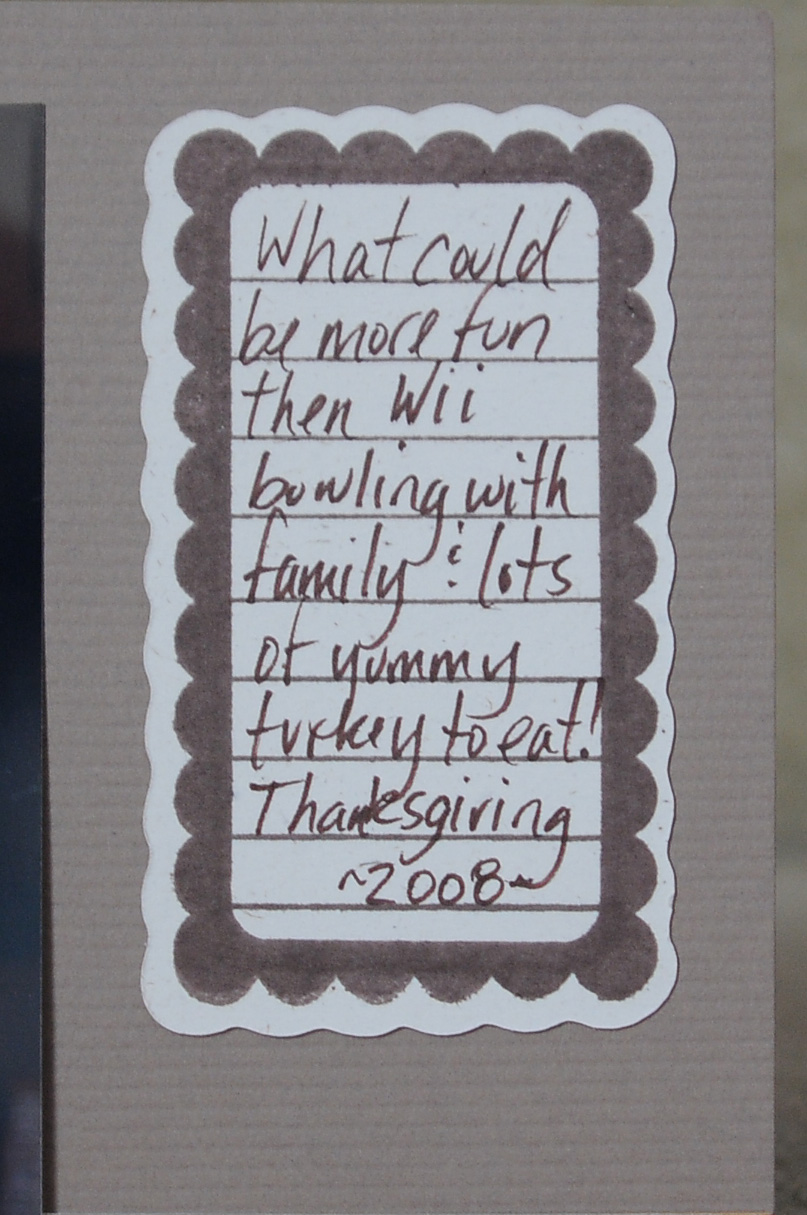 What could
be more fun
then Wii
bowling with
family & lots
of yummy
turkey to eat!
Thanksgiving
~2008~